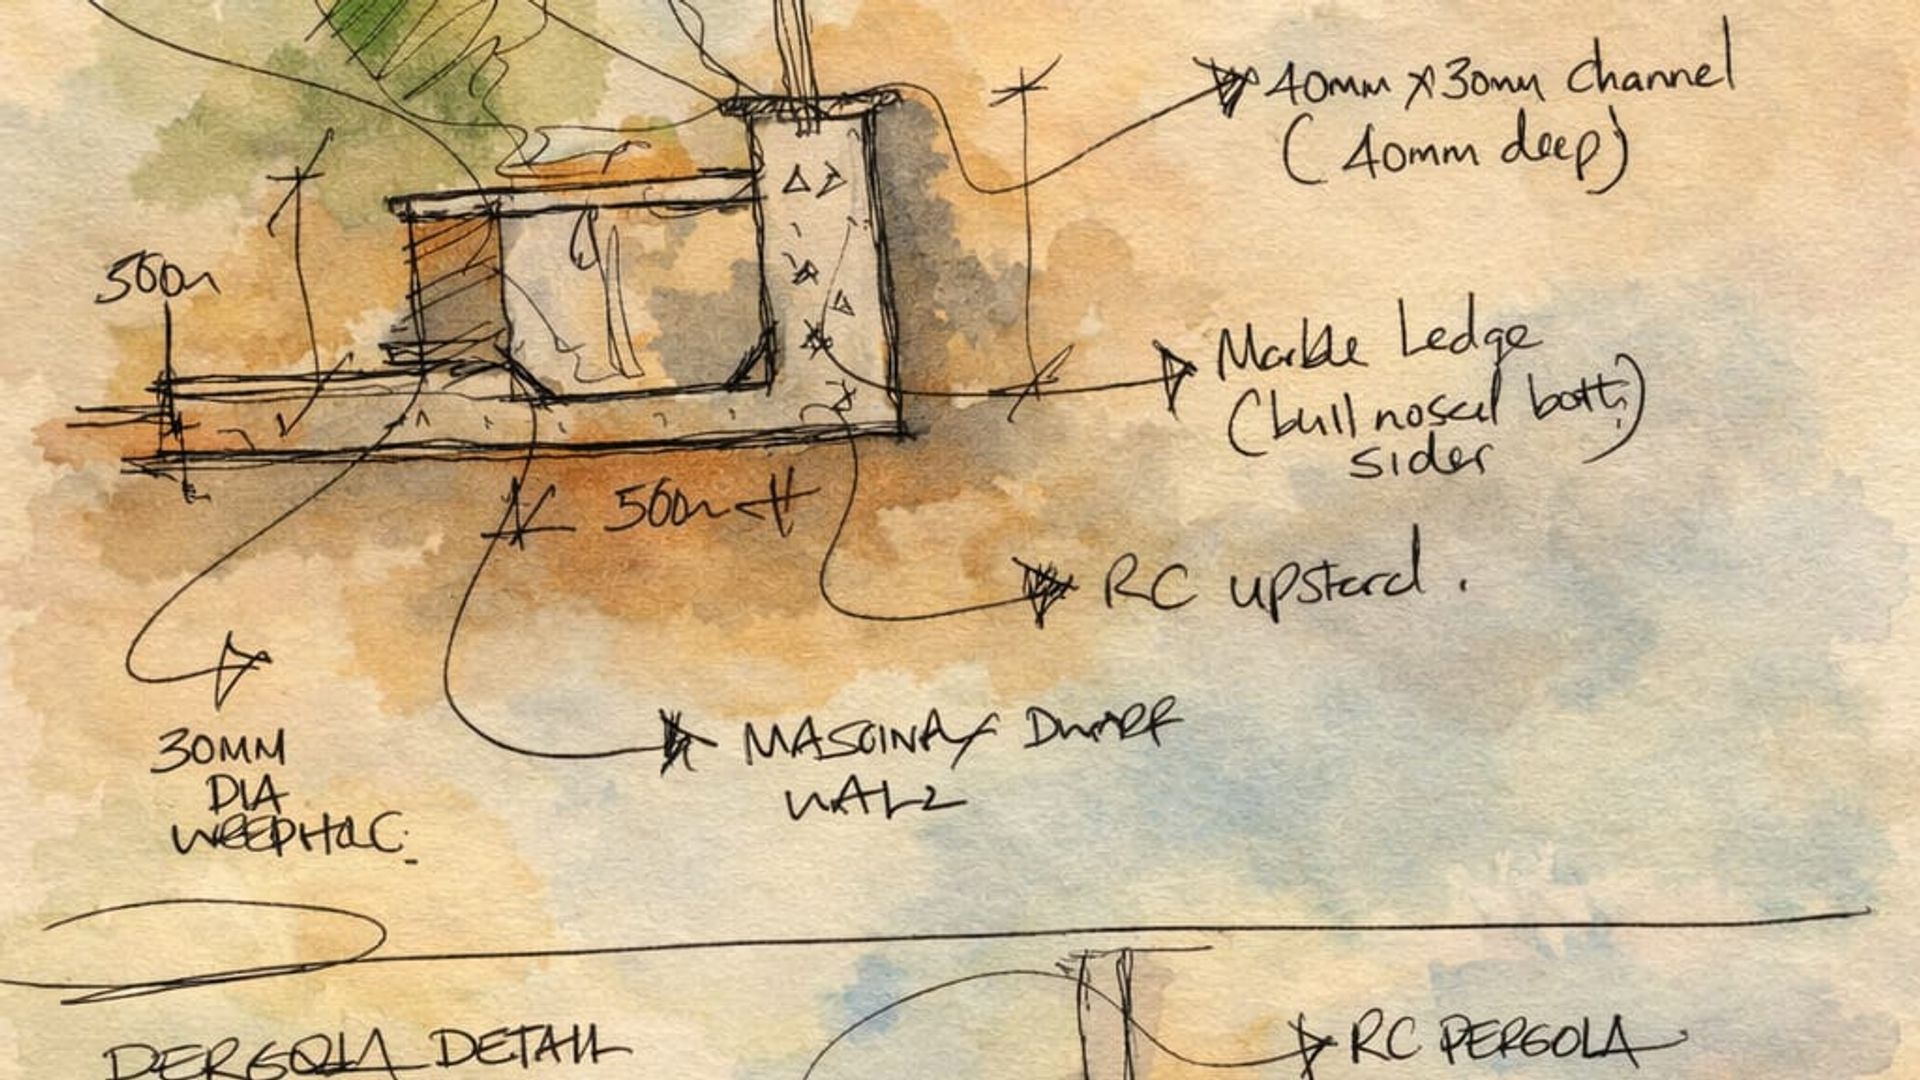 40mm x 30mm channel
(40mm deep)
500
Marble Ledge
(bull nosed both
sides
500
RC upstand.
30MM
DIA
WEEPHOLE
MASONRY DWARF
WALL
PERGOLA DETAIL
RC PERGOLA